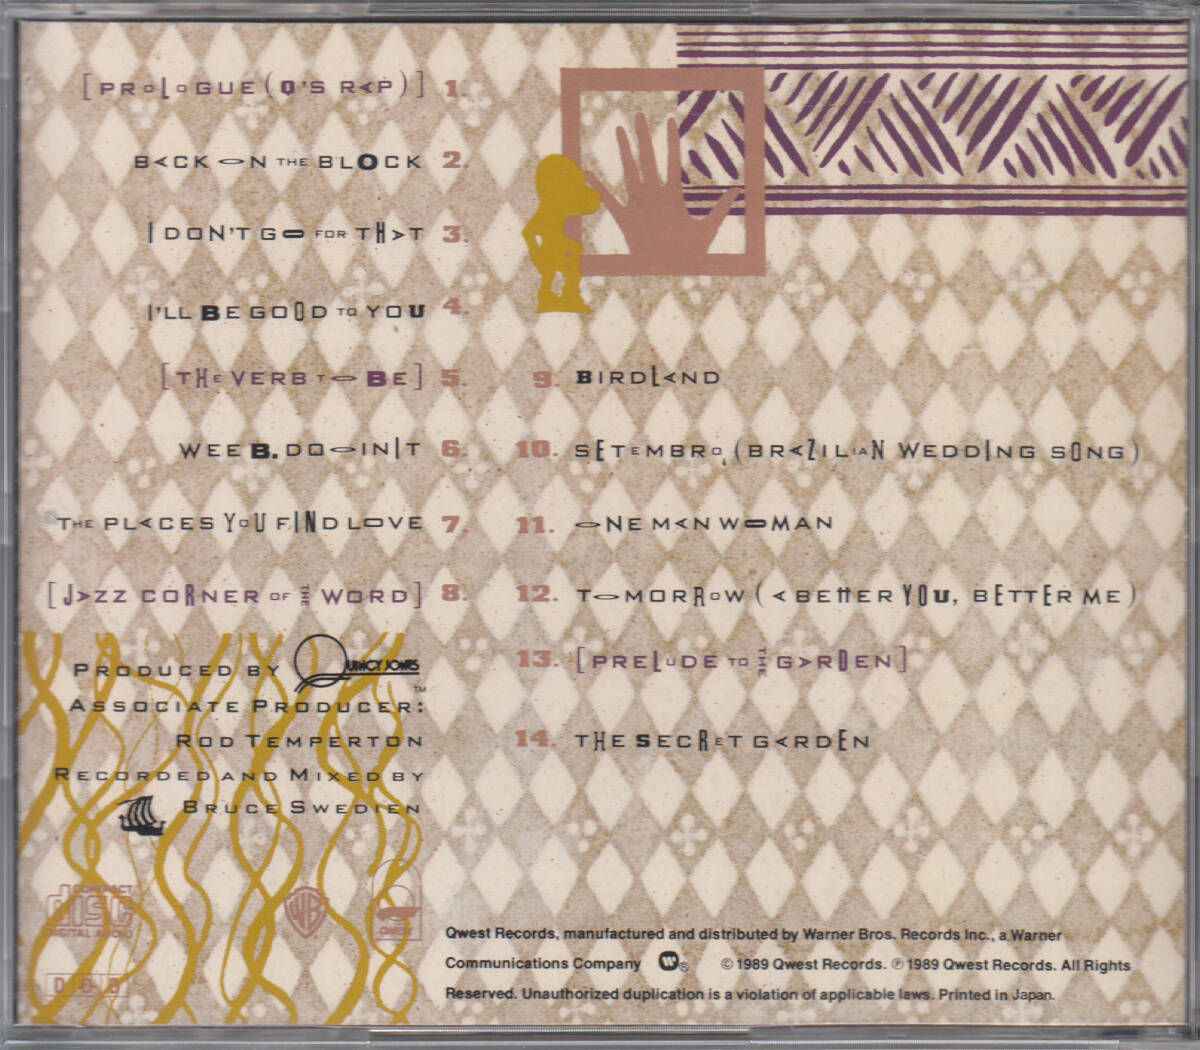 [PROLOGUE (Q'S RAP)] 1.
BACK ON THE BLOCK 2.
I DON'T GO FOR THAT 3.
I'LL BE GOOD TO YOU 4.
[THE VERB TO BE] 5.
WEE B. DOOINIT 6.
THE PLACES YOU FIND LOVE 7.
[JAZZ CORNER OF THE WORD] 8.
9. BIRDLAND
10. SETEMBRO (BRAZILIAN WEDDING SONG)
11. ONE MAN WOMAN
12. TOMORROW (A BETTER YOU, BETTER ME)
13. [PRELUDE TO THE GARDEN]
14. THE SECRET GARDEN
PRODUCED BY QUINCY JONES ™
ASSOCIATE PRODUCER:
ROD TEMPERTON
RECORDED AND MIXED BY
BRUCE SWEDIEN
COMPACT
disc
DIGITAL AUDIO
WB
QWEST
DDD
Qwest Records, manufactured and distributed by Warner Bros. Records Inc., a Warner
Communications Company W® © 1989 Qwest Records. ℗ 1989 Qwest Records. All Rights
Reserved. Unauthorized duplication is a violation of applicable laws. Printed in Japan.